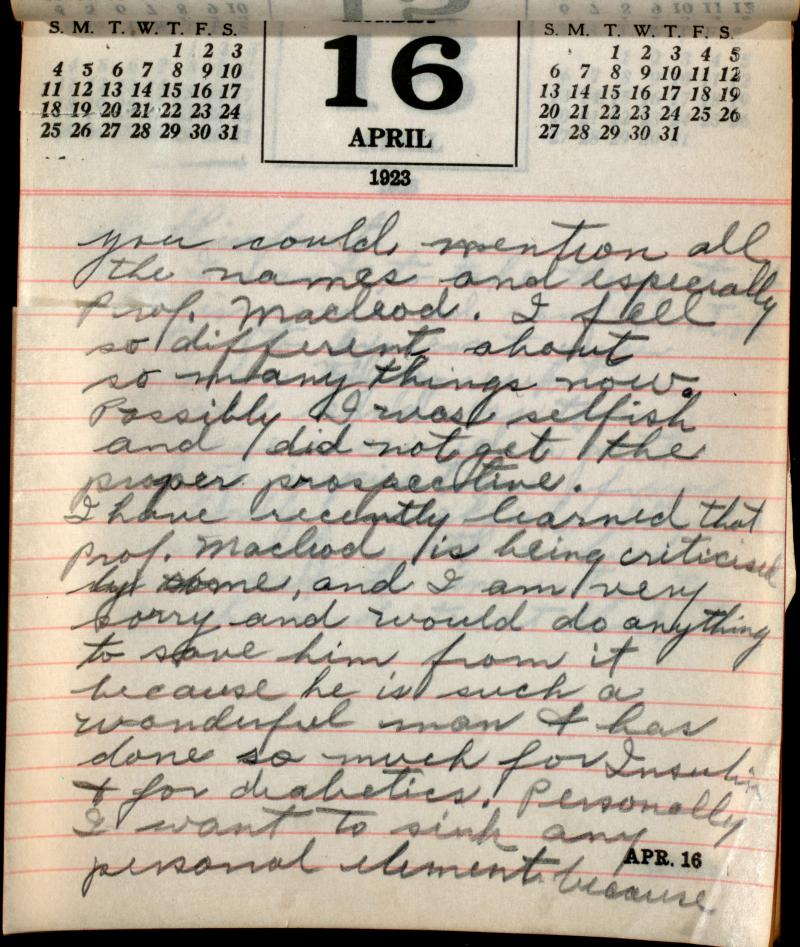 S. M. T. W. T. F. S.
1 2 3
4 5 6 7 8 9 10
11 12 13 14 15 16 17
18 19 20 21 22 23 24
25 26 27 28 29 30 31
16
APRIL
1923
S. M. T. W. T. F. S.
1 2 3 4 5
6 7 8 9 10 11 12
13 14 15 16 17 18 19
20 21 22 23 24 25 26
27 28 29 30 31
you could mention all
the names and especially
Prof. Macleod. I feel
so different about
so many things now.
Possibly I was selfish
and did not get the
proper prospective.
I have recently learned that
Prof. Macleod is being criticised
by some, and I am very
sorry and would do anything
to save him from it
because he is such a
wonderful man & has
done so much for Insulin
& for diabetics. Personally
I want to sink any
personal element because
APR. 16